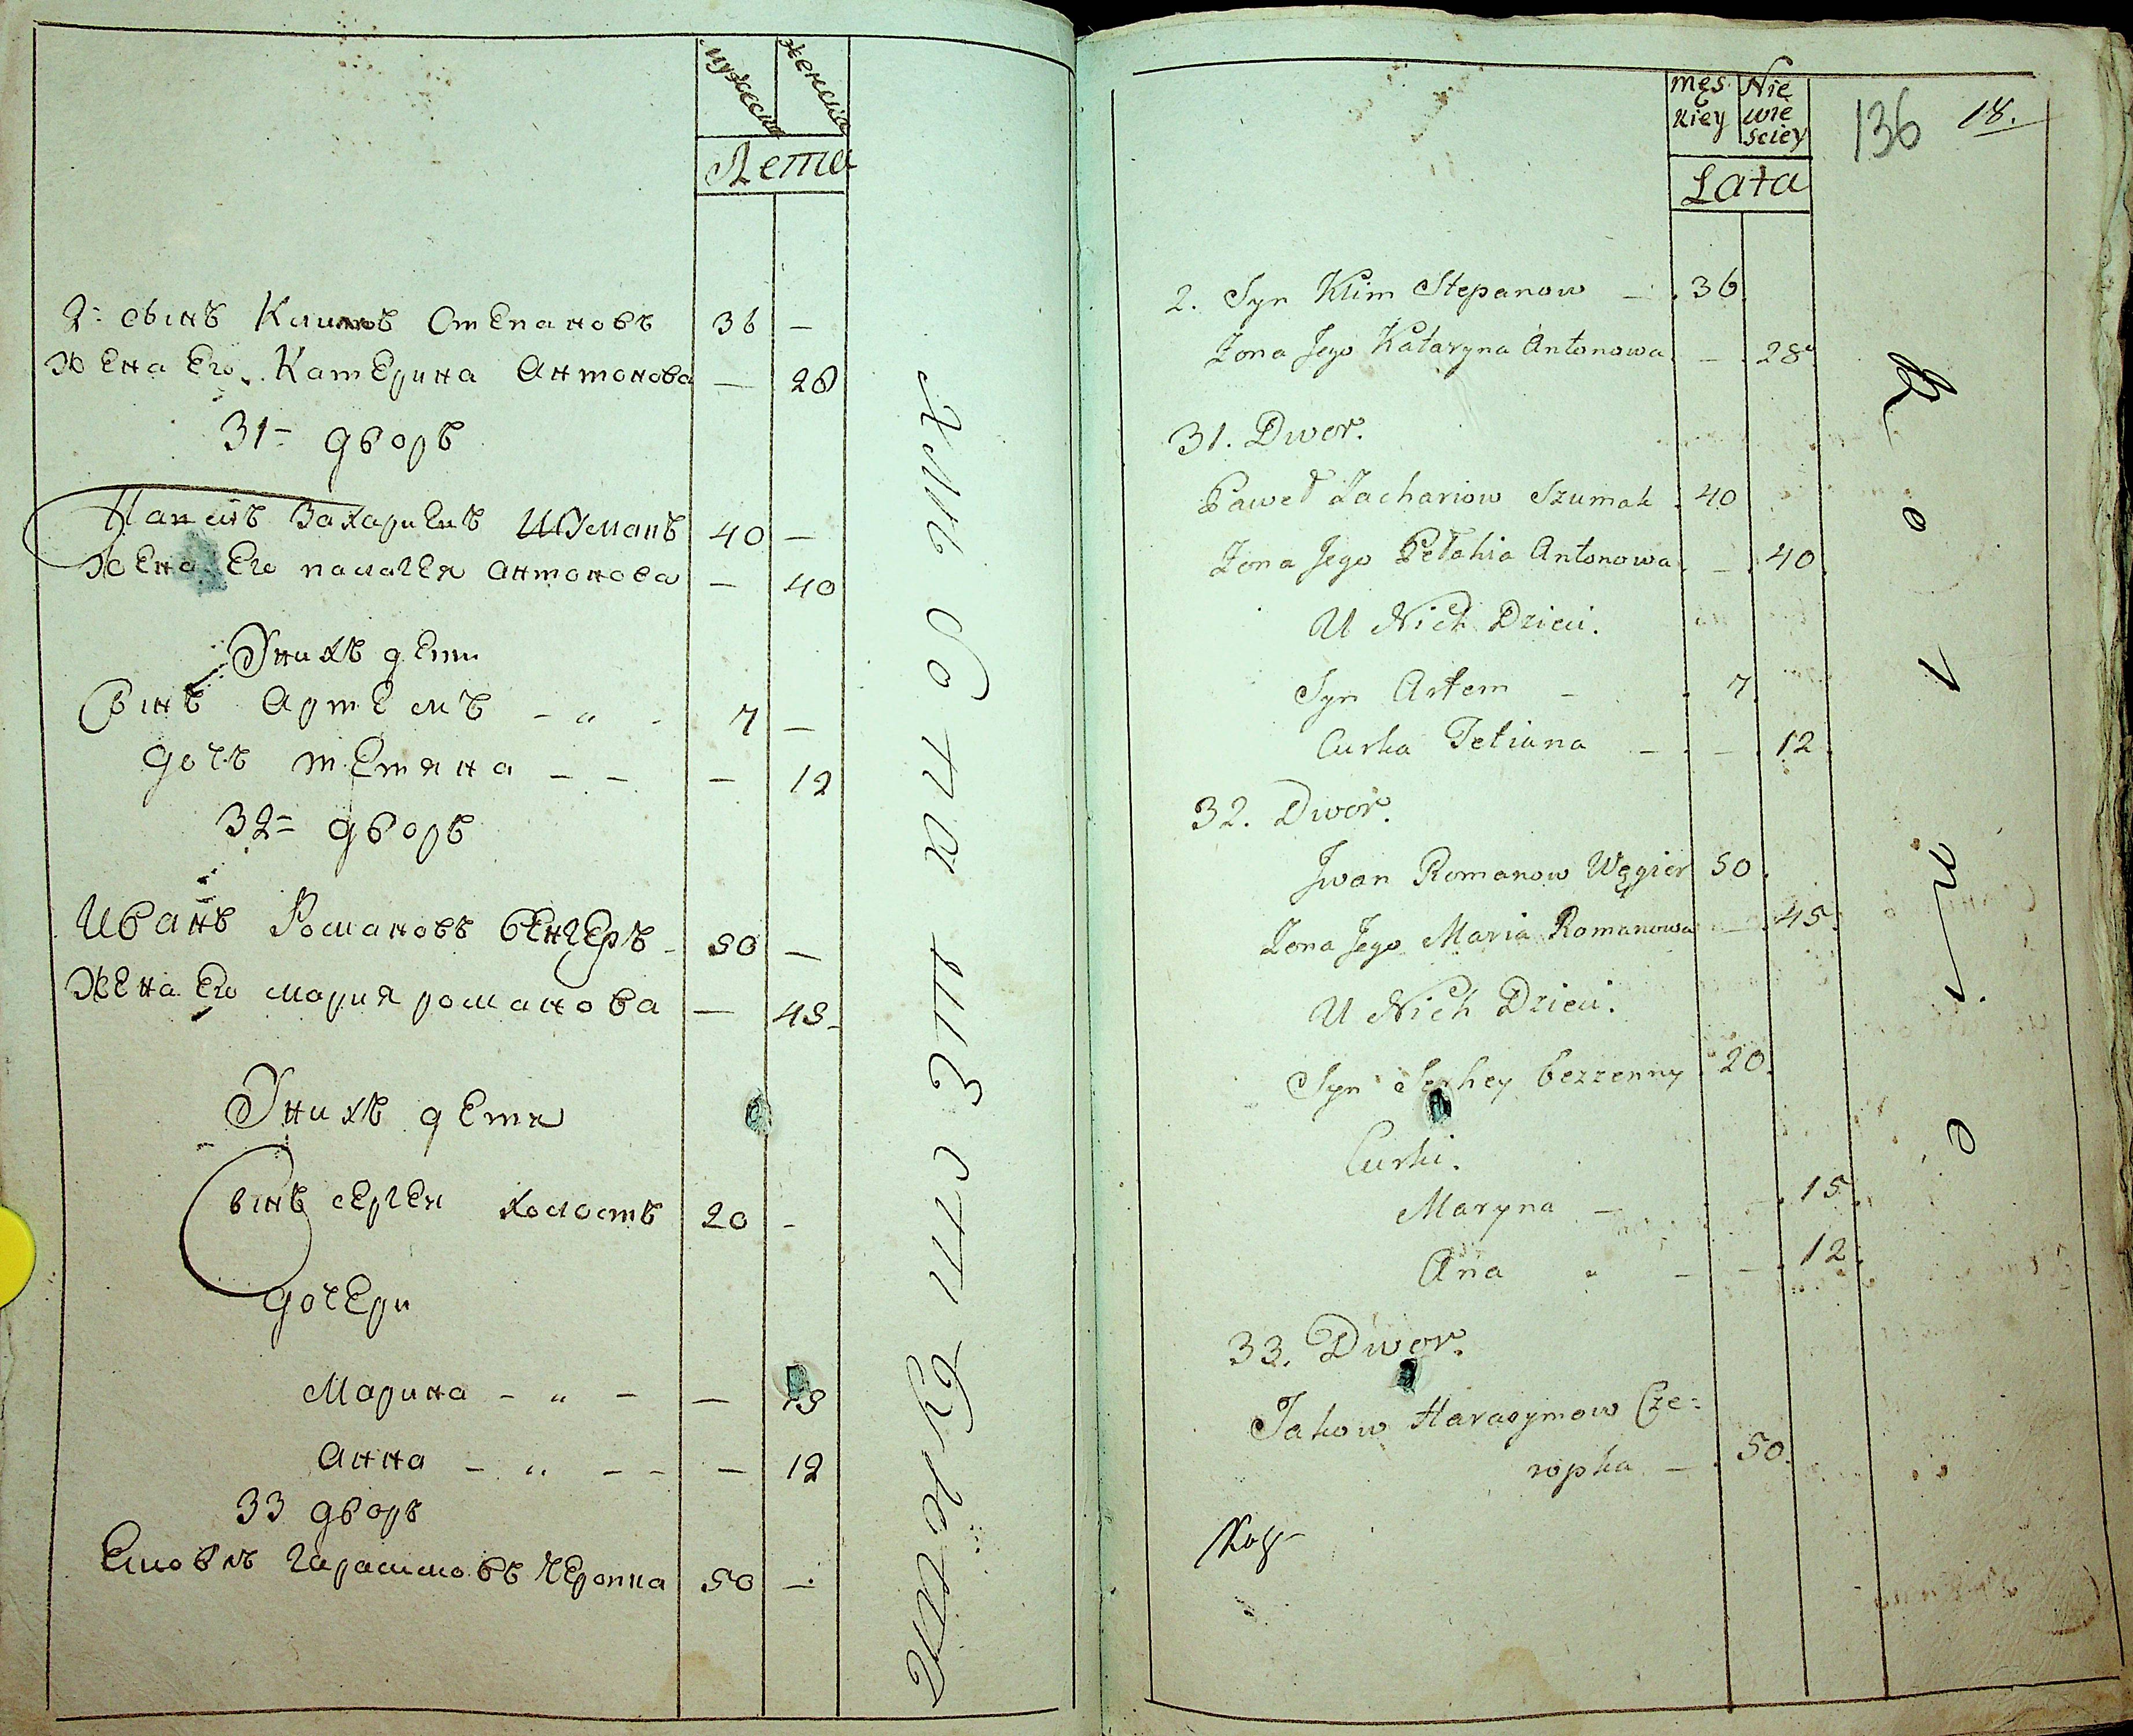 мужеска женска
Лета
2= сынъ Климъ Степановъ 36 —
жена его Катерина Антонова — 28
31= дворъ
Павелъ Захариевъ Шумакъ 40 —
жена его палагея антонова — 40
У нихъ дети
Сынъ Артемъ - „ - 7 —
дочь тетяна — — — 12
32= дворъ
Иванъ Романовъ венгеръ - 50 —
жена его мария романова — 45-
У нихъ дети
Сынъ сергей холостъ 20 -
дочери
Марина - „ - — 15
Анна - „ - - — 12
33 дворъ
Яковъ гарасимовъ черопка 50 —
męs kiey Nie wie sciey
136 18.
Lata
2. Syn Klim Stepanow — 36.
Zona Jego Kataryna Antonowa — 28.
31. Dwor.
Paweł Zachariow Szumak 40
Zona Jego Pełahia Antonowa. — 40.
U Nich Dzieci.
Syn Artem - 7.
Curka Tetiana — — 12.
32. Dwor.
Jwan Romanow Węgier 50.
Zona Jego Maria Romanowa — 45.
U Nich Dzieci.
Syn Serhey bezzenny 20.
Curki.
Maryna — - 15.
Ana „ - — 12.
33. Dwor.
Jakow Harasymow Cze=
ropka — 50.